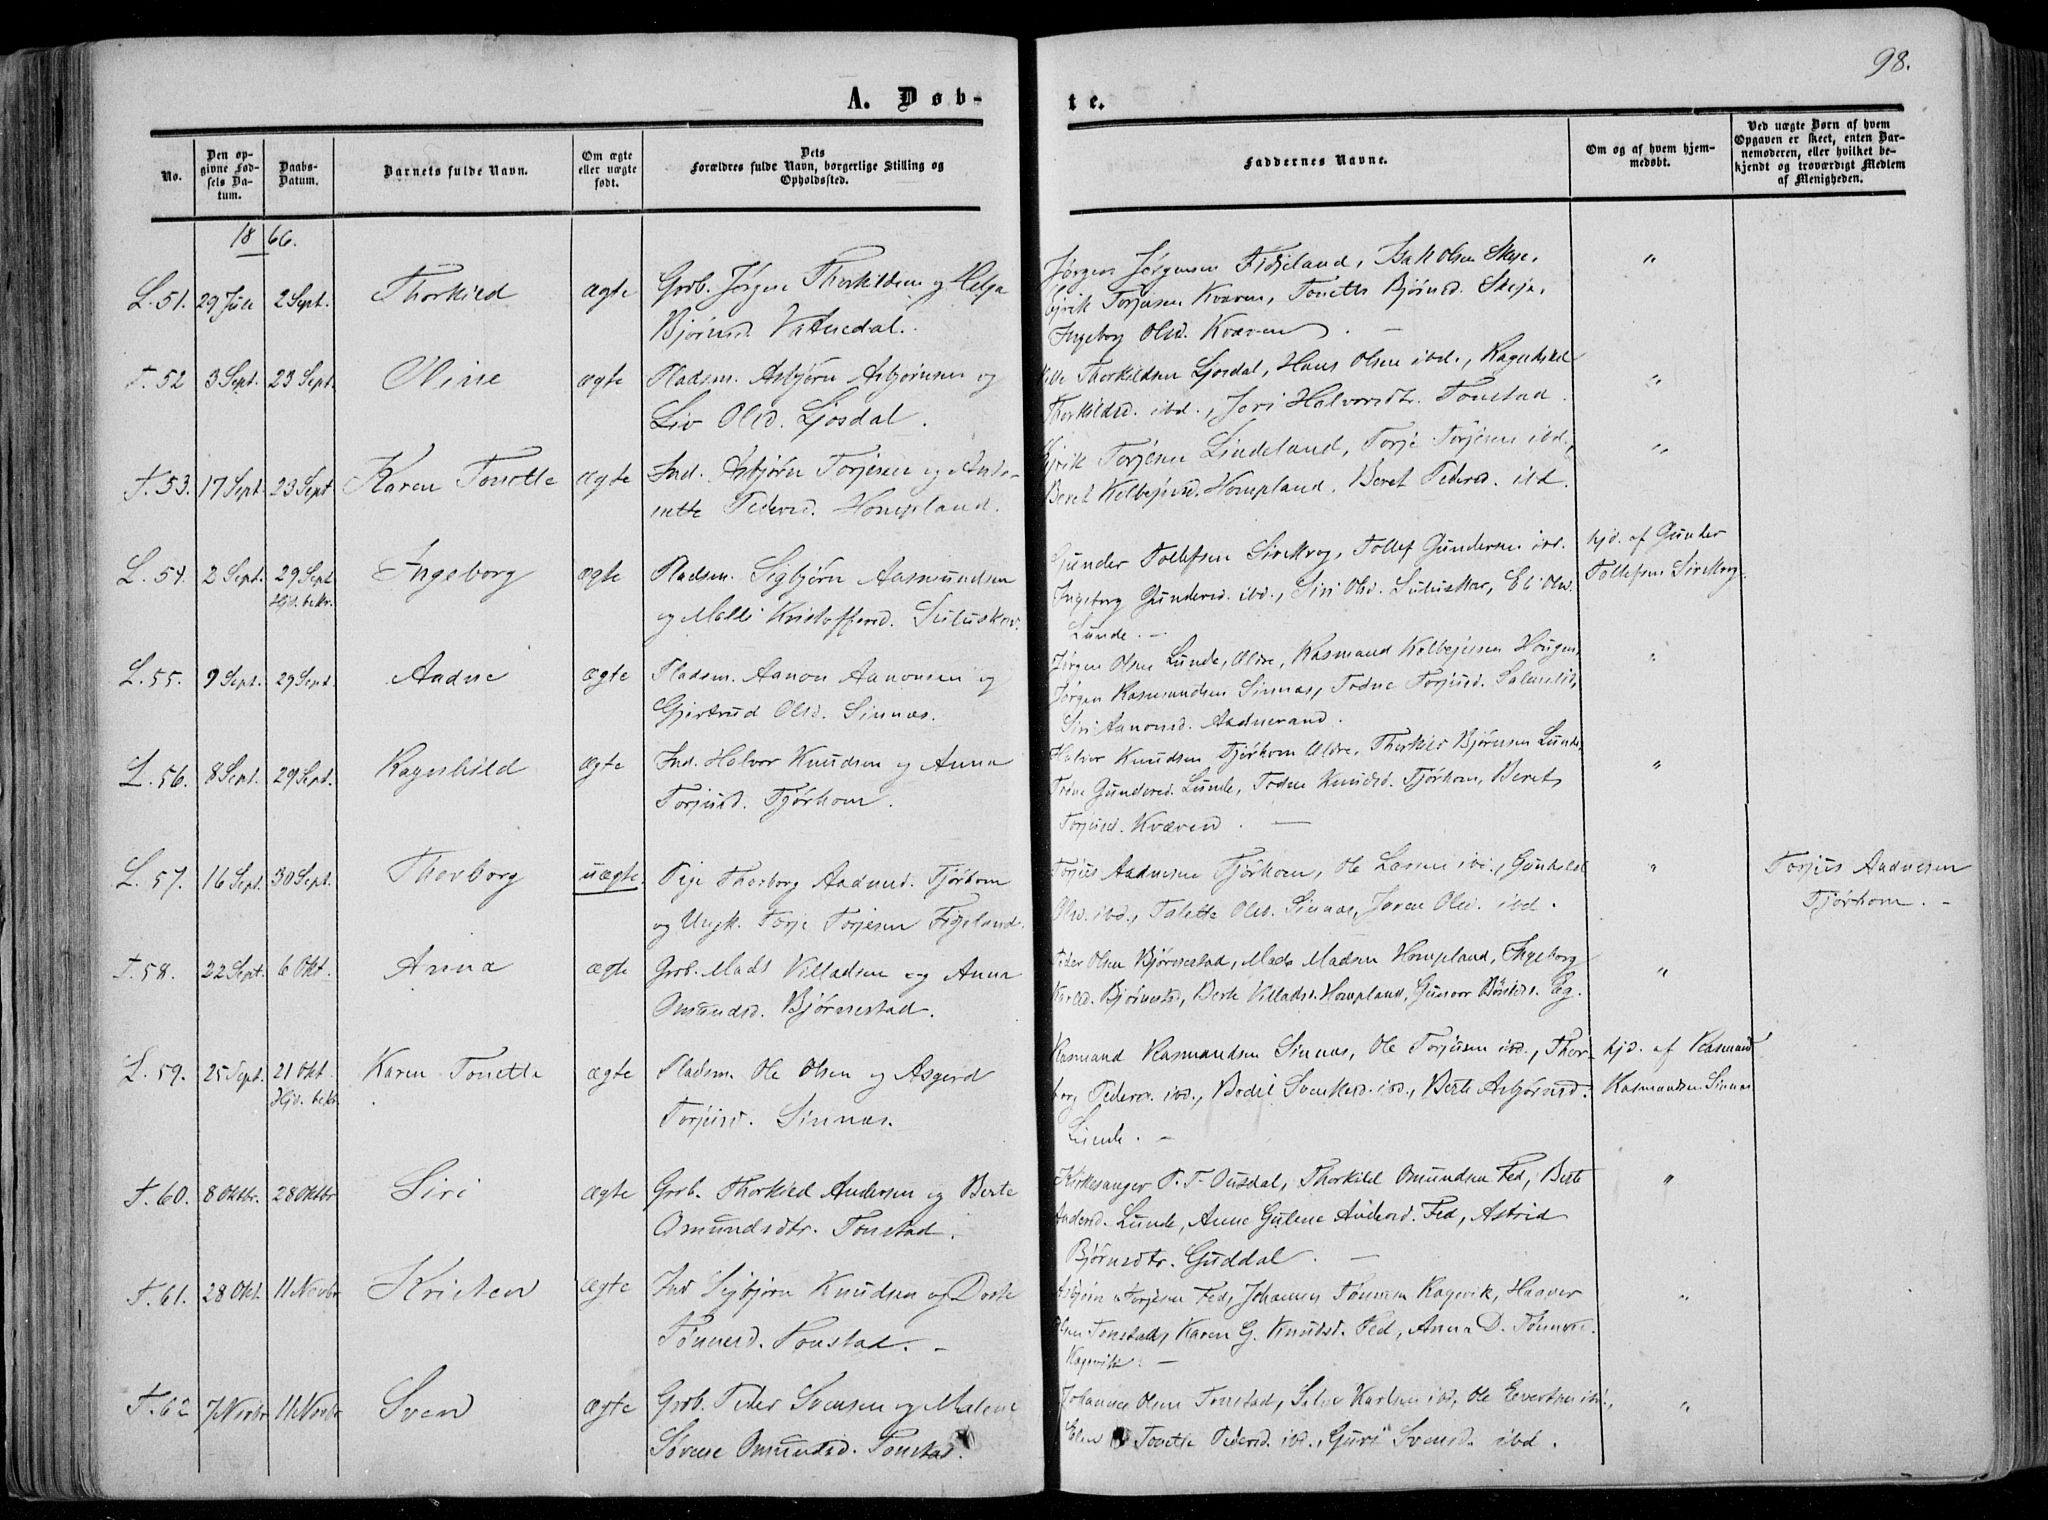 98.
A. Døb-
te.
No.
Den op-
givne Fød-
sels Da-
tum.
Daabs-
Datum.
Barnets fulde Navn.
Om ægte
eller uægte
født.
Dets
Forældres fulde Navn, borgerlige Stilling og
Opholdssted.
Faddernes Navne.
Om og af hvem hjem-
medøbt.
Ved uægte Børn af hvem
Opgaven er skeet, enten Bar-
nemoderen, eller hvilket be-
kjendt og troværdigt Medlem
af Menigheden.
1866.
L. 51. 29 Juli 2 Sept. Thorkild ægte Grb. Jørgen Thorkildsen og Helga
Bjørnsd. Vatnedal.
Jørgen Jørgensen Fidjeland, Isak Olsen Skeje,
Torjesen Kvæven, Tonette Bjørnsd. Skeje,
Ingeborg Olsd. Kvæven. —
"
T. 52 3 Sept. 23 Sept. Oline ægte Pladsm. Asbjørn Asbjørnsen og
Liv Olsd. Ljosdal.
Thorkildsen Ljosdal, Hans Olsen ibd., Ragnhild
Thorkildsd. ibd., Jori Halvorsdtr. Tonstad.
"
T. 53. 17 Sept. 23 Sept Karen Tonette ægte Ind. Asbjørn Torjesen og Anto-
nette Pedersd. Hompland.
Torjesen Lindeland, Torje Torjesen ibd.,
Beret Kolbejnsd. Hompland, Beret Pedersd. ibd.
"
L. 54. 2 Sept. 29 Sept Hjd. bekr. Ingeborg ægte Pladsm. Sigbjørn Aasmundsen
og Malli Kristoffersd. Suluskar.
Gunder Tollefsen Sirekrog, Tollef Gundersen ibd.
Ingeborg Gundersd. ibd., Siri Olsd. Suluskar, Eli Olsd.
Lunde. —
hjd. af Gunder
Tollefsen Sirekrog.
L. 55. 9 Sept. 29 Sept. Aadne ægte Pladsm. Aanon Aanonsen og
Gjertrud Olsd. Sinnæs.
Jørgen Olsen Lunde, Aldre, Rasmund Kolbejnsen Hougen,
Jørgen Rasmundsen Sinnæs, Todne Torjusd. Salmelid,
Siri Aanonsd. Aadnerand.
"
L. 56. 8 Sept. 29 Sept. Ragnhild ægte Ind. Halvor Knudsen og Anna
Torjusd. Tjørhom.
Halvor Knudsen Tjørhom Aldre, Thorkild Bjørnsen Lunde,
Gundersd. Lunde, Todne Knudsd. Tjørhom, Beret
Torjusd. Kvæven. —
"
L. 57. 16 Sept. 30 Sept. Thorborg uægte. Pige Thorborg Aadnesd. Tjørhom
og Ungk. Torje Torjesen Fidjeland.
Torjus Aadnesen Tjørhom, Ole Larsen ibd., Gunhild
Olsd. ibd., Talette Olsd. Sinnæs, Joren Olsd. ibd.
"
Torjus Aadnesen
Tjørhom. —
T. 58. 22 Sept. 6 Okt. Anna ægte Grb. Mads Villadsen og Anna
Omundsd. Bjørnestad.
Peder Olsen Bjørnestad, Mads Madsen Hompland, Ingeborg
Karlsd. Bjørnestad, Berte Villadsd. Hompland, Gunvor Eg.
"
L. 59. 25 Sept. 21 Okt. Hjd. bekr. Karen Tonette ægte Pladsm. Ole Olsen og Asgerd
Torjusd. Sinnæs.
Rasmund Rasmundsen Sinnæs, Ole Torjusen ibd., Thor-
borg Pedersd. ibd., Bodil Svenkesd. ibd., Berte Asbjørnsd.
Lunde. —
hjd. af Rasmund
Rasmundsen Sinnæs
T. 60. 8 Oktbr. 28 Oktbr Siri ægte Grb. Thorkild Andersen og Berte
Omundsdtr. Tonstad.
Kirkesanger P. T. Ousdal, Thorkild Omundsen Fed, Berte
Andersd. Lunde, Anne Gulene Andersd. Fed, Astrid
Bjørnsdtr. Guddal. —
"
T. 61. 28 Okt. 11 Novbr Kristen ægte Ind Sigbjørn Knudsen og Dorte
Tønnesd. Tonstad. —
Asbjørn Torjesen Fed, Johannes Tønnesen Ragevik, Haaver
Olsen Tonstad, Karen G. Knudsd. Fed, Anna D. Tønnesd.
Ragevik. —
"
T. 62 7 Novbr 11 Novbr Sven ægte Grb. Peder Svensen og Malene
Sørene Omundsd. Tonstad.
Johannes Olsen Tonstad, Karlsen ibd, Ole Evertsen ibd.,
Elen Tonette Pedersd. ibd., Guri Svensd. ibd.
"